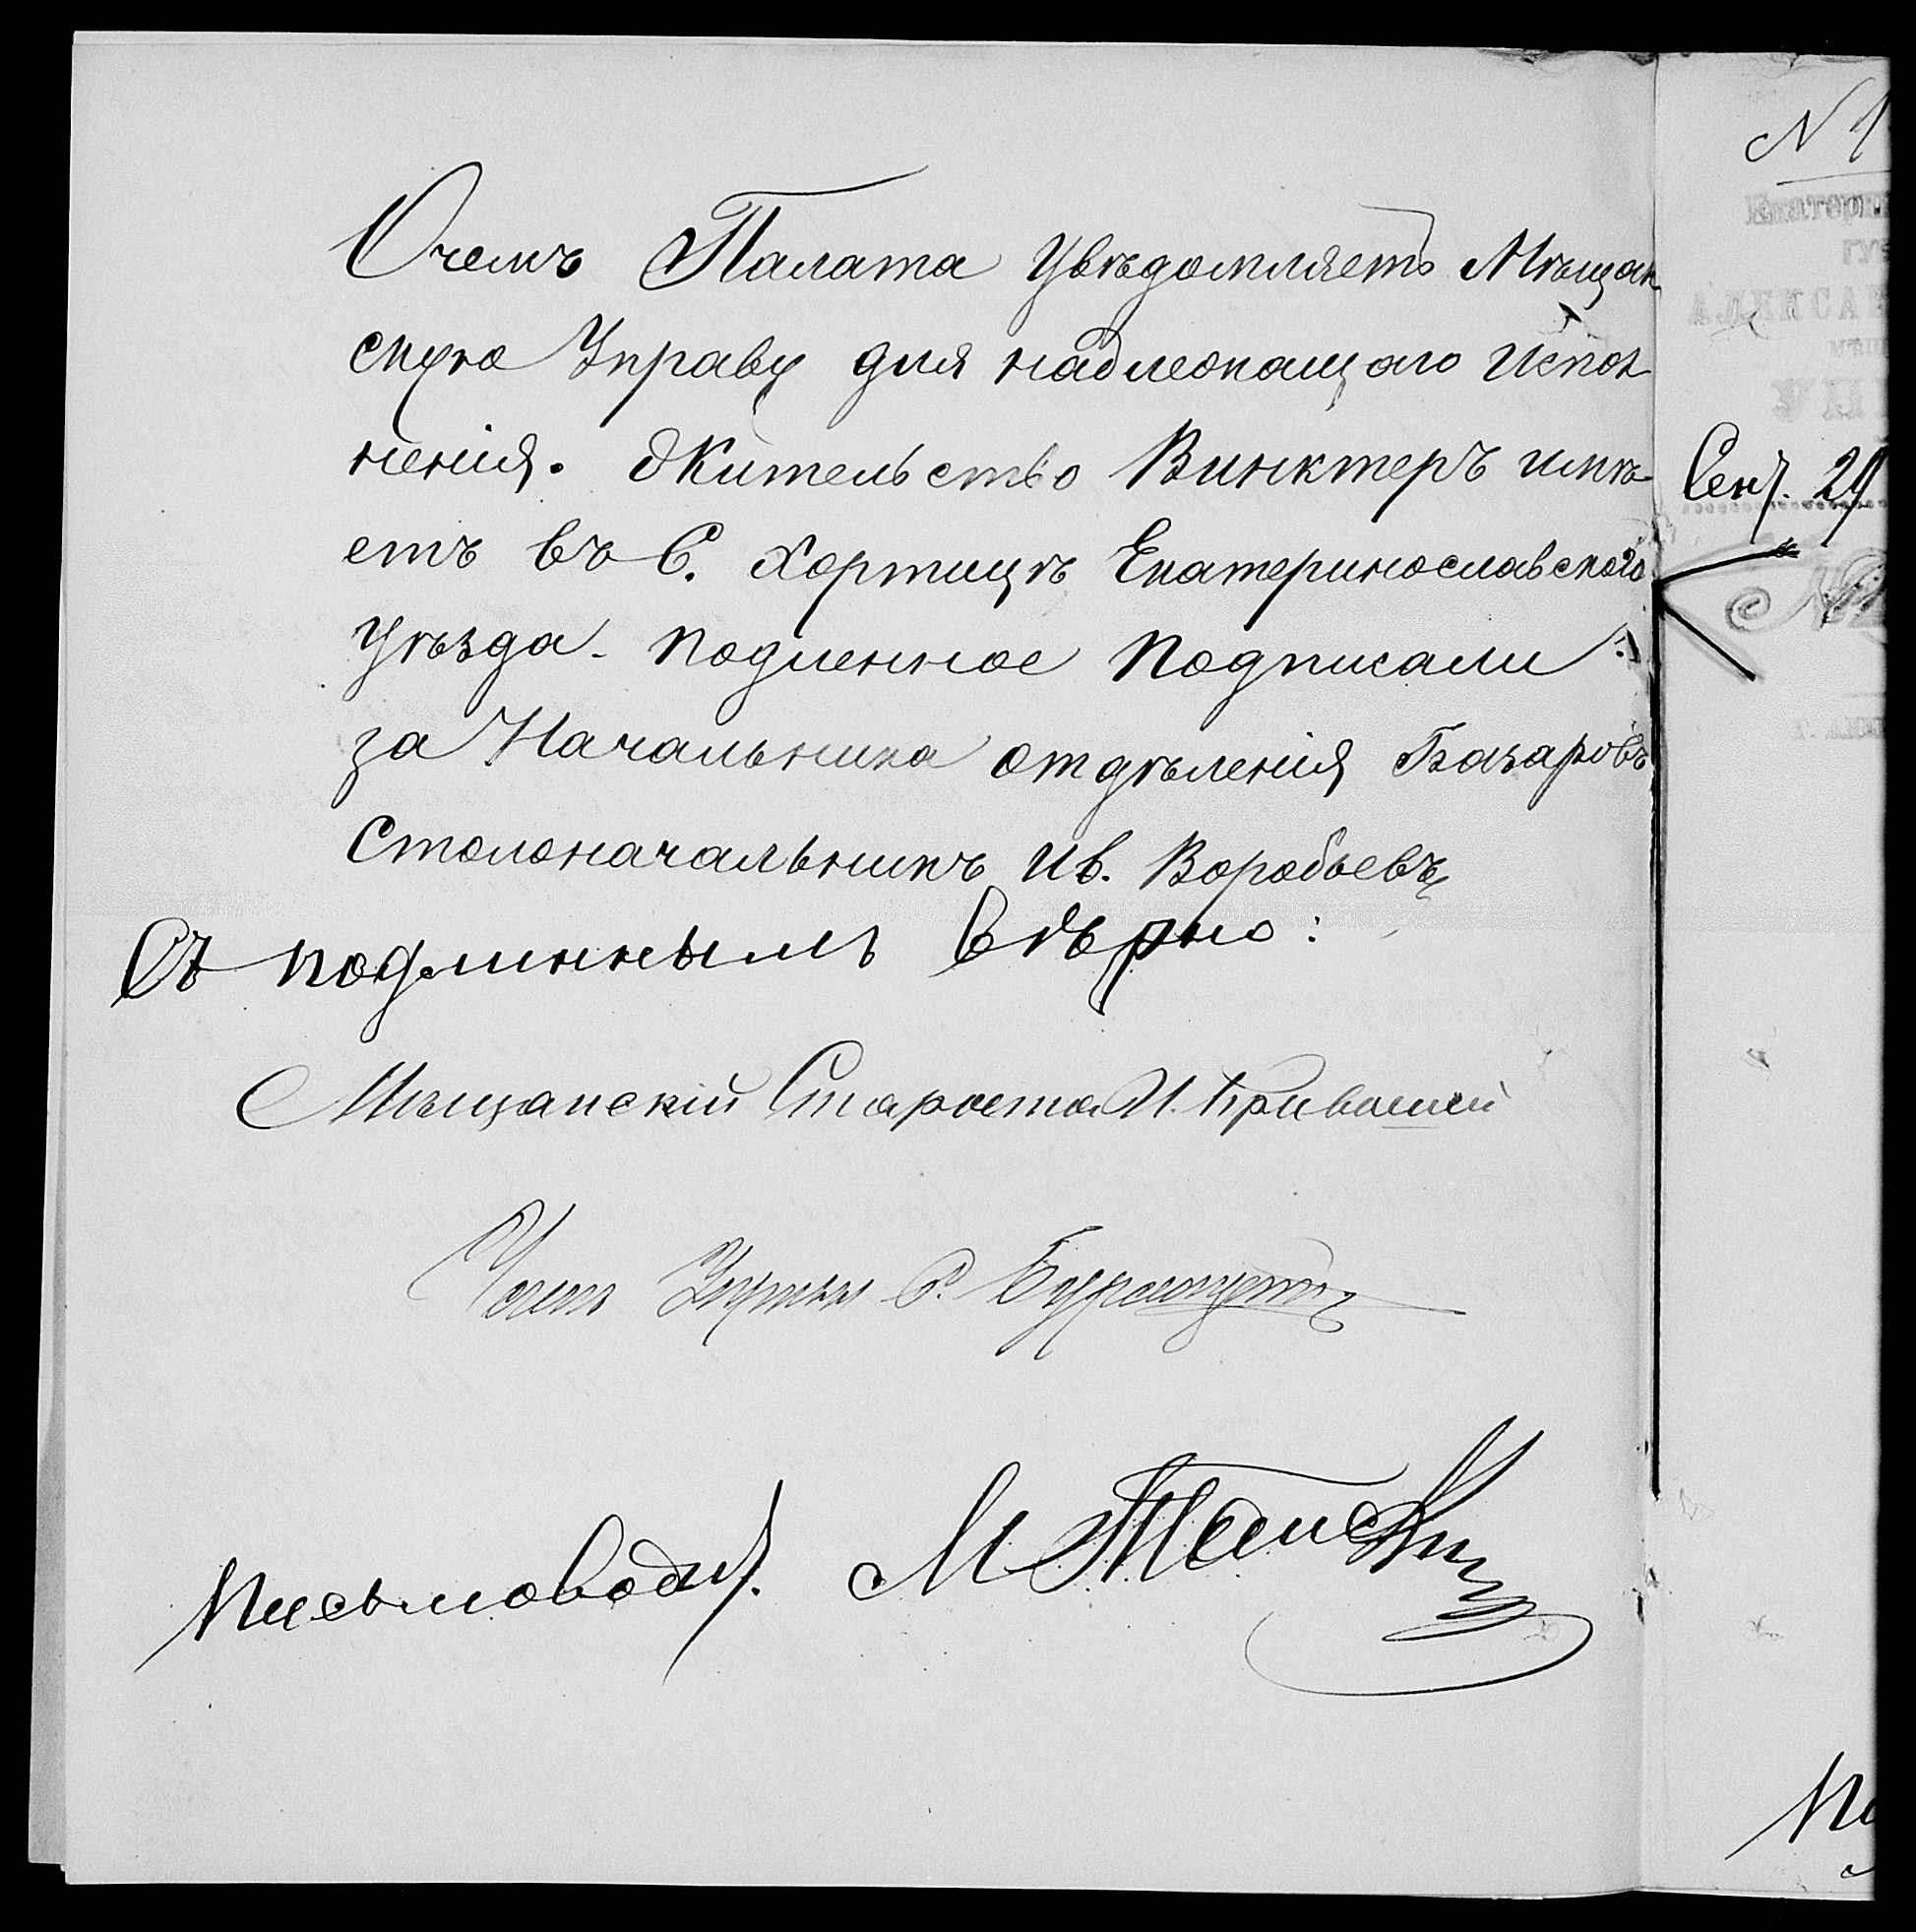 О чемъ Палата увѣдомляетъ Мѣщан
скую Управу для надлежащаго испол
ненія. Жительство Винктеръ имѣ-
етъ въ С. Хортицѣ Екатеринославского
уѣзда. Подленное Подписали:
за Начальника отдѣленія Базаровъ
Столоначальникъ Ив. Воробьевъ
Съ подлиннымъ вѣрно:
Мѣщанскій Староста И.
Членъ Управы
Письмоводит.
N 1
Екатерин
ГУБ
АЛЕКСАН
Сент. 29